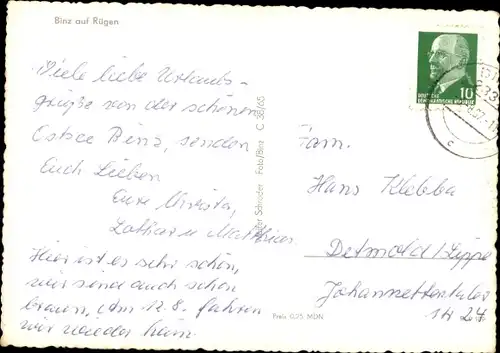 Binz auf Rügen
Viele liebe Urlaubs-
grüße von der schönen
Ostsee Binz, senden
Euch Lieben
Eure
Lothar u Matthias
Hier ist es sehr schön,
wir sind auch schön
braun, Am 12.8. fahren
wir wieder heim.
Schröder Foto/Binz C 38/65
Preis 0,25 MDN
10
DEUTSCHE
DEMOKRATISCHE REPUBLIK
Fam.
Hans Klebba
Detmold/Lippe
14 24